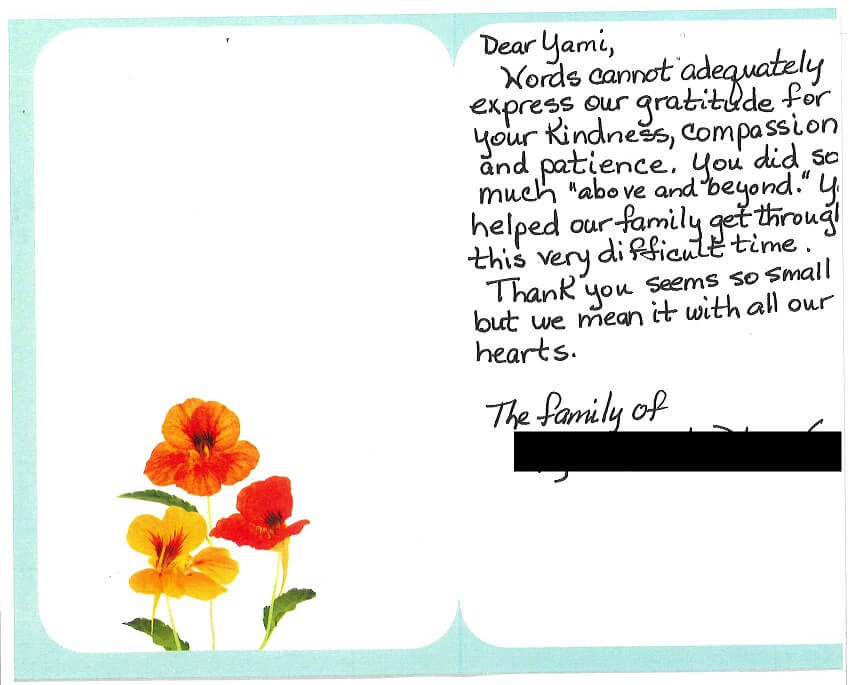 Dear Yami,
Words cannot adequately
express our gratitude for
your kindness, compassion
and patience. You did so
much "above and beyond." Y
helped our family get through
this very difficult time.
Thank you seems so small
but we mean it with all our
hearts.
The family of